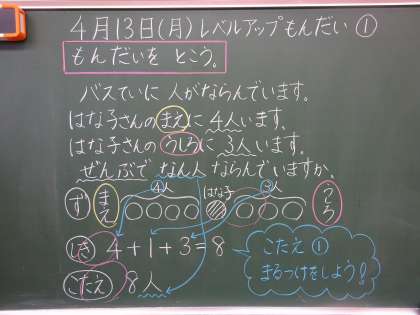 4月13日(月)レベルアップもんだい ①
もんだいを とこう。
バスていに 人がならんでいます。
はな子さんの まえに 4人います。
はな子さんの うしろに 3人います。
ぜんぶで なん人 ならんでいますか。
④人 はな子 ③人
ず まえ うしろ
しき 4+1+3=8
こたえ 8人
こたえ ①
まるつけをしよう!